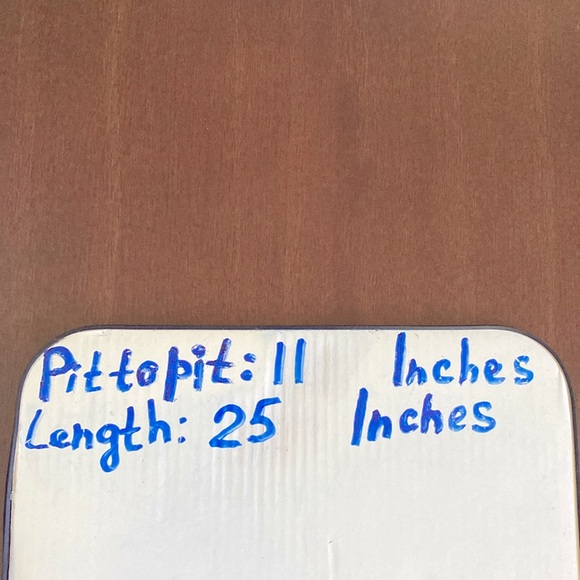 Pit to pit: 11 Inches
Length: 25 Inches